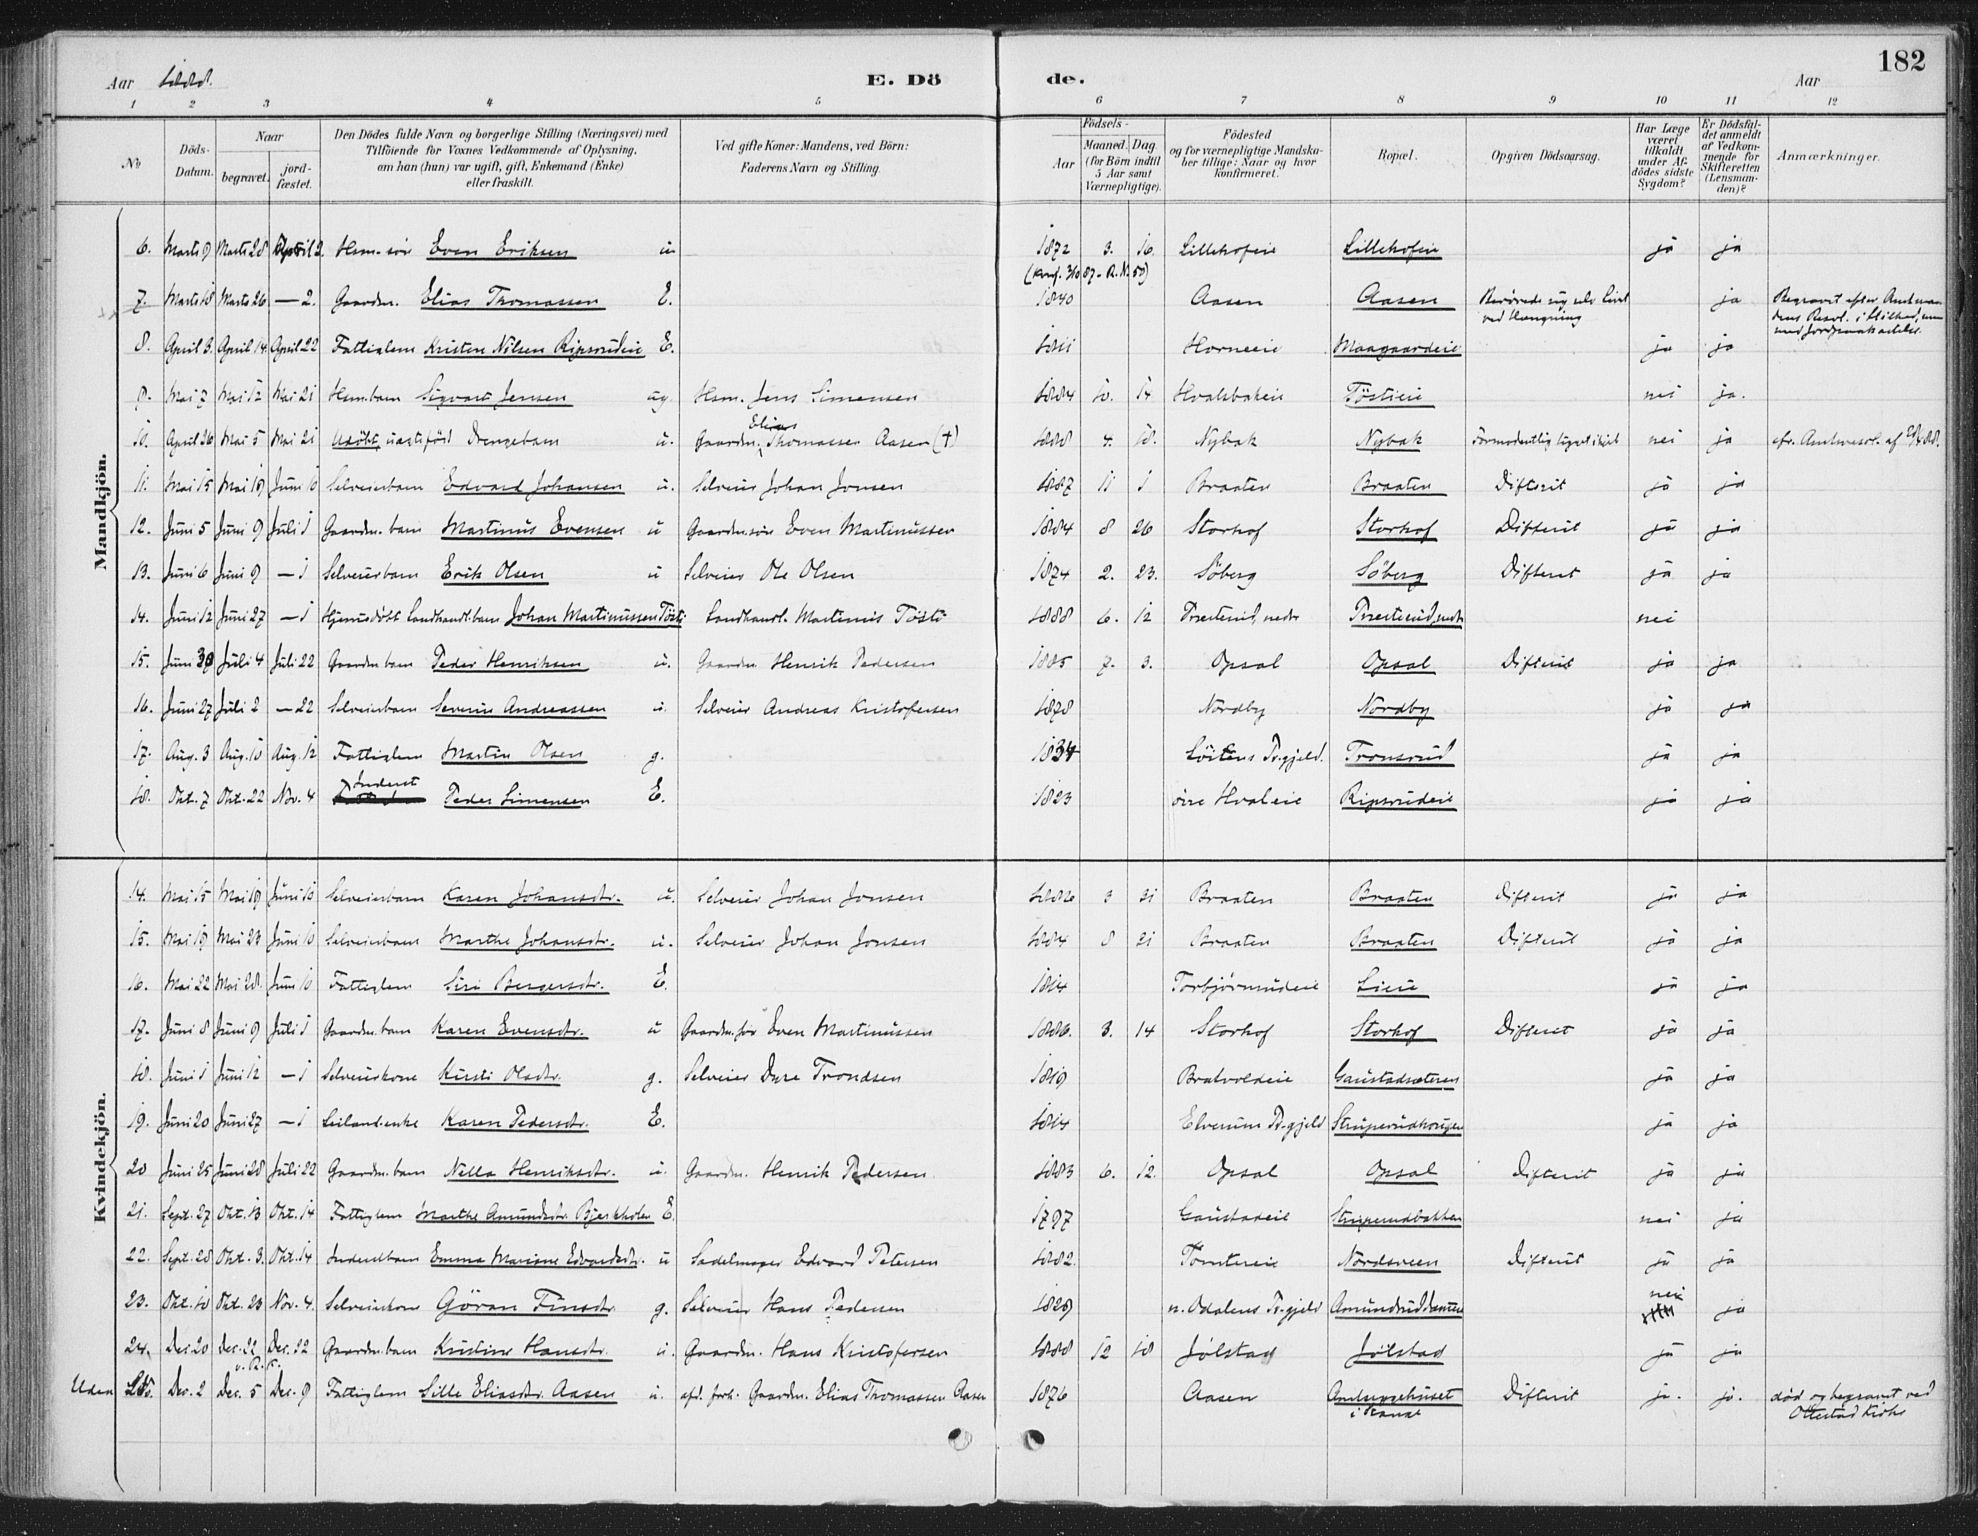 182
Aar 1888. E. Döde. Aar
1 2 3 4 5 6 7 8 9 10 11 12
No
Döds-Datum.
Naar begravet. jordfæstet.
Den Dödes fulde Navn og borgerlige Stilling (Næringsvei) med Tilföiende for Voxnes Vedkommende af Oplysning, om han (hun) var ugift, gift, Enkemand (Enke) eller fraskilt.
Ved gifte Koner: Mandens, ved Börn: Faderens Navn og Stilling.
Födsels- Aar Maaned. Dag. (for Börn indtil 5 Aar samt Værnepligtige).
Födested og for værnepligtige Mandskaber tillige: Naar og hvor konfirmeret.
Bopæl.
Opgiven Dödsaarsag.
Har Læge været tilkaldt under Afdödes sidste Sygdom?
Er Dödsfaldet anmeldt af Vedkommende for Skifteretten (Lensmanden)?
Anmærkninger.
Mandkjön.
6. Marts 9 Marts 28 April 2. Hsm. sön Even Eriksen u. 1872 3. 16. Lillehofeie Lillehofeie ja ja
7. Marts 18 Marts 26 — 2. Gaardm. Elias Thomassen E. 1840 Aasen Aasen Berövede sig selv Livet ved Hængning ja Begravet efter Amtmandens Resol. i Stilhed, men med Jordpaakastelse.
8. April 3. April 14. April 22 Fattiglem Kristen Nilsen Ripsrudeie E. 1811 Horneeie Moagaardeie ja ja
9. Mai 7 Mai 12 Mai 21 Hsm. barn Sigvart Jensen ug. Hsm. Jens Simensen 1884 10. 14 Hvalsbakeie Töstieie nei ja.
10. April 26 Mai 5 Mai 21 Udöbt uægteföd Drengebarn u. Gaardm. Elias Thomassen Aasen (†) 1888 4. 18. Nybak Nybak Formodentlig ligget ihjel nei ja cfr. Amtsresol. af
11. Mai 15 Mai 19 Juni 10 Selveierbarn Edvard Johansen u. Selveier Johan Jonsen 1887 11 1 Braaten Braaten Difterit ja ja
12. Juni 5 Juni 9 Juli 1 Gaardm. barn Martinus Evensen u Gaardm.sön Even Martinussen 1884 8 26 Storhof Storhof Difterit ja ja
13. Juni 6 Juni 9 — 1 Selveierbarn Erik Olsen u Selveier Ole Olsen 1874 2. 23. Söberg Söberg Difterit ja ja
14. Juni 12 Juni 27 — 1 Hjemmedöbt Landhandl. barn Johan Martinussen Tösti Landhandl. Martinus Tösti 1888 6. 12 Præsterud, nedre Præsterud, nedre nei
15. Juni 30 Juli 4 Juli 22 Gaardm barn Peder Henriksen u. Gaardm. Henrik Pedersen 1885 7. 3. Opsal Opsal Difterit ja ja
16. Juni 27 Juli 2 — 22 Selveierbarn Severin Andreassen u. Selveier Andreas Kristofersen 1878 Nordby Nordby ja ja
17. Aug. 3 Aug. 10 Aug. 12 Fattiglem Martin Olsen g. 1834 Löitens Pr.gjeld. Tronsrud ja ja
18. Okt. 7 Okt. 22 Nov. 4 Inderst Peder Simensen E. 1823 övre Hvaleie Ripsrudeie ja ja
Kvindekjön.
14. Mai 15 Mai 19 Juni 10 Selveierbarn Karen Johansdtr. u. Selveier Johan Jonsen 1882 3 21 Braaten Braaten Difterit ja ja
15. Mai 19 Mai 23 Juni 10 Selveierbarn Marthe Johansdtr. u. Selveier Johan Jonsen 1884 8 21 Braaten Braaten Difterit ja ja
16. Mai 22 Mai 28. Juni 10 Fattiglem Siri Bergersdtr. E. 1814 Torbjörnsrudeie Lieie ja ja
17. Juni 8 Juni 9 Juli 1 Gaardm. barn Karen Evensdtr. u Gaardm. sön Even Martinussen 1886. 3. 14 Storhof Storhof Difterit ja ja
18. Juni 1 Juni 12 — 1 Selveierkone Kirsti Olsdtr. g. Selveier Dyre Trondsen 1819 Bratvoldeie Gaustadsæteren ja ja
19. Juni 20 Juni 27 — 1 Leiland.enke Karen Pedersdtr. E. 1814 Elverum Pr.gjeld Struperudhougen ja ja
20 Juni 25 Juni 28 Juli 22 Gaardm. barn Nilla Henriksdtr. u. Gaardm. Henrik Pedersen 1883 6. 12. Opsal Opsal Difterit ja ja
21. Sept. 27 Okt. 13 Okt. 14 Fattiglem Marthe Amundsdtr. Bjerkholen E. 1797 Gaustadeie Struperudbakken nei ja
22. Sept. 28 Okt. 3. Okt. 14 Inderstbarn Emma Mariane Edvardsdtr. u Sadelmager Edvard Petersen 1882. Tomtereie Nordsveen Difterit ja ja
23. Okt. 10 Okt. 23 Nov. 4. Selveierkone Göran Finsdtr. g. Selveier Hans Pedersen 1829 n. Odalens Pr.gjeld Amundruddammen nei ja
24. Dec. 20 Dec. 22 Dec. 22 Gaardm. barn Kristine Hansdtr. u. Gaardm. Hans Kristofersen 1888 12 18 Jölstad Jölstad ja ja
Uden No. Dec. 2 Dec. 5 Dec. 9 Fattiglem Sille Eliasdtr. Aasen u. afd. forh. Gaardm. Elias Thomassen Aasen 1876 Aasen Amtssygehuset i Stange Difterit ja. ja. död og begravet ved Ottestad Kirke